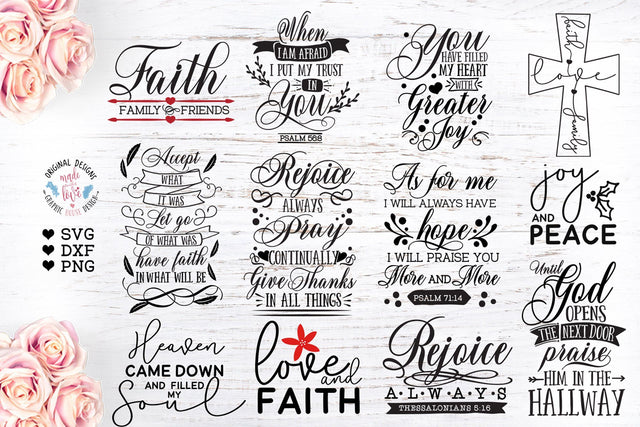 Faith
FAMILY & FRIENDS
When
I AM AFRAID
I PUT MY TRUST
IN
You
PSALM 56:8
You
HAVE FILLED
MY HEART
WITH
Greater
Joy
faith
love
family
ORIGINAL DESIGNS
made
with
love
GRAPHIC HOUSE DESIGN
SVG
DXF
PNG
Accept
WHAT
IT WAS
Let go
OF WHAT WAS
have faith
IN WHAT WILL BE
Rejoice
ALWAYS
Pray
CONTINUALLY
Give Thanks
IN ALL THINGS
As for me
I WILL ALWAYS HAVE
hope
I WILL PRAISE YOU
More AND More
PSALM 71:14
joy
AND
PEACE
Heaven
CAME DOWN
AND FILLED
MY
Soul
love
and
FAITH
Rejoice
A·L·W·A·Y·S
THESSALONIANS 5:16
Until
God
OPENS
THE NEXT DOOR
praise
HIM IN THE
HALLWAY